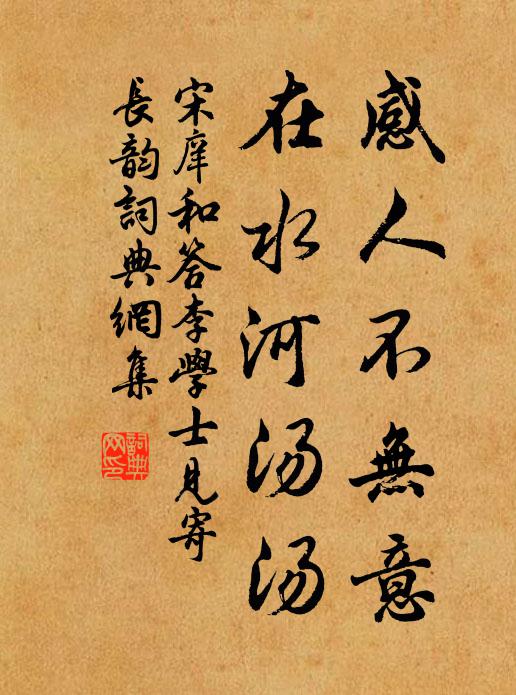 感人不無意
在水河汤汤
宋庠和答李學士見寄
長韵詞典網集
詞典网印